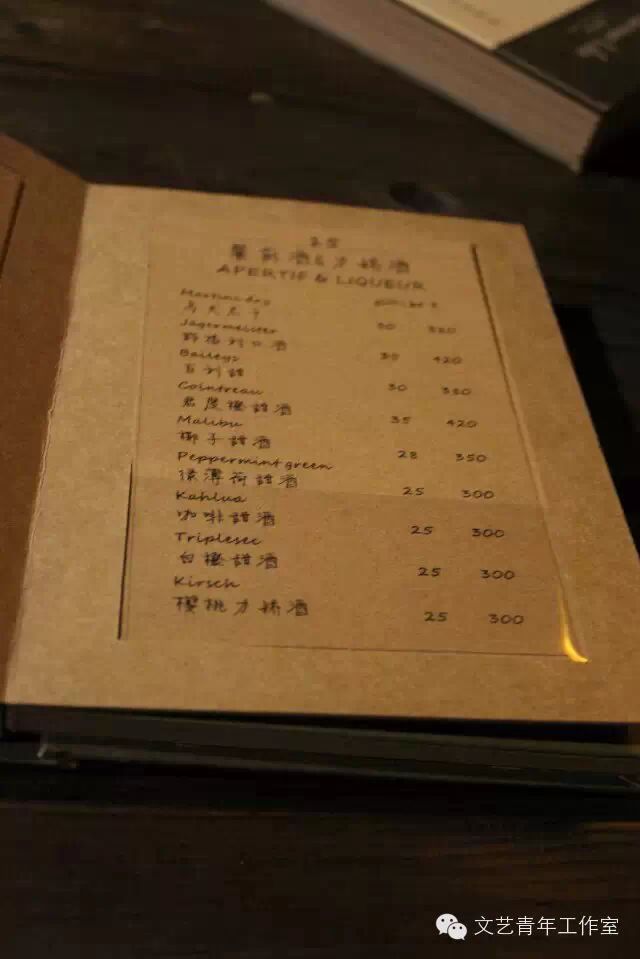 餐前酒&力娇酒
APERTIF & LIQUEUR
Martini dry
马天尼干 30 320
Jägermeister
野格利口酒 35 420
Baileys
百利甜 30 350
Cointreau
君度橙甜酒 35 420
Malibu
椰子甜酒 28 350
Peppermint green
绿薄荷甜酒 25 300
Kahlua
咖啡甜酒 25 300
Triplesec
白橙甜酒 25 300
Kirsch
樱桃力娇酒 25 300
文艺青年工作室